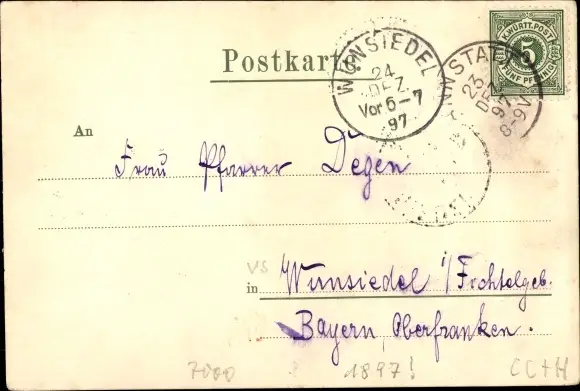 K. WÜRTT. POST
5
FÜNF PFENNIG
Postkarte.
WUNSIEDEL
24
DEZ.
Vor 6-7
97
NNSTAT
23
DEZ
97
8-9V
An
Frau Pfarrer Degen
VS
in Wunsiedel i/Fichtelgeb.
Bayern, Oberfranken.
7000
1897!
CC+H